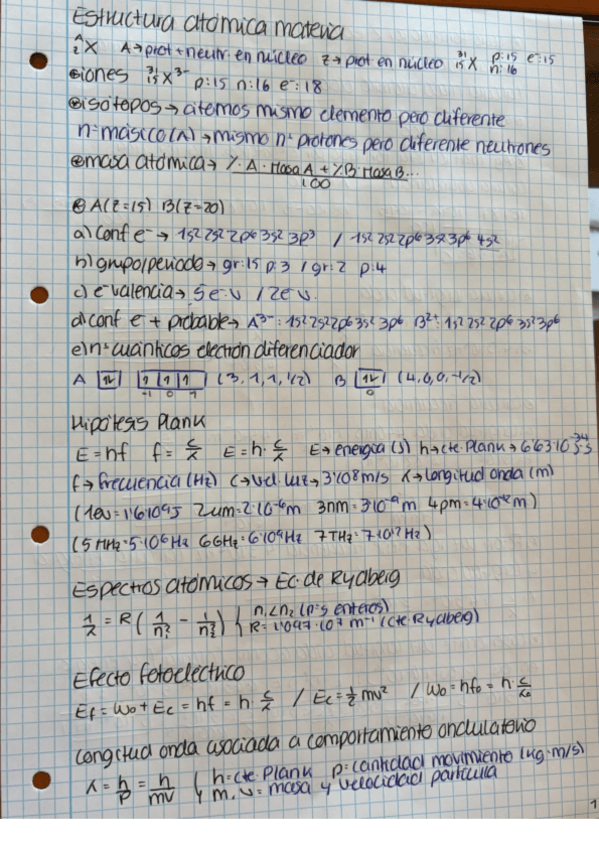 Estructura atómica materia
ᴬ_Z X A→prot+neutr. en núcleo Z→prot en núcleo ³¹₁₅X p:15 e⁻:15 n:16
iones ³¹₁₅X³⁻ p:15 n:16 e⁻:18
isótopos→átomos mismo elemento pero diferente
nº másico (A)→mismo nº protones pero diferente neutrones
masa atómica→ %A·Masa A + %B·Masa B... / 100
A(Z=15) B(Z=20)
a) Conf e⁻→ 1s² 2s² 2p⁶ 3s² 3p³ / 1s² 2s² 2p⁶ 3s² 3p⁶ 4s²
b) grupo/periodo→ gr:15 p:3 / gr:2 p:4
c) e⁻valencia→ 5e⁻v / 2e⁻v
d) conf e⁻ + probable→ A³⁻: 1s² 2s² 2p⁶ 3s² 3p⁶ B²⁺: 1s² 2s² 2p⁶ 3s² 3p⁶
e) nº cuánticos electrón diferenciador
A 1L 1 1 1 (3,1,1,1/2) B 1L (4,0,0,-1/2)
-1 0 1 0
Hipótesis Plank
E=hf f=c/λ E=h·c/λ E→energía (J) h→cte. Plank→6'63·10⁻³⁴ J·s
f→frecuencia (Hz) c→vel. luz→3·10⁸ m/s λ→longitud onda (m)
(1eV=1'6·10⁻¹⁹J 2μm=2·10⁻⁶m 3nm=3·10⁻⁹m 4pm=4·10⁻¹²m)
(5MHz=5·10⁶Hz 6GHz=6·10⁹Hz 7THz=7·10¹²Hz)
Espectros atómicos→ Ec. de Rydberg
1/λ = R(1/n₁² - 1/n₂²) { n₁<n₂ (nºs enteros)
R=1'097·10⁷ m⁻¹ (cte. Rydberg)
Efecto fotoeléctrico
Ef = W₀ + Ec = hf = h·c/λ / Ec=½mv² / W₀=hf₀=h·c/λ₀
Longitud onda asociada a comportamiento ondulatorio
λ = h/p = h/mv { h=cte. Plank p=cantidad movimiento (kg·m/s)
m,v=masa y velocidad partícula
1